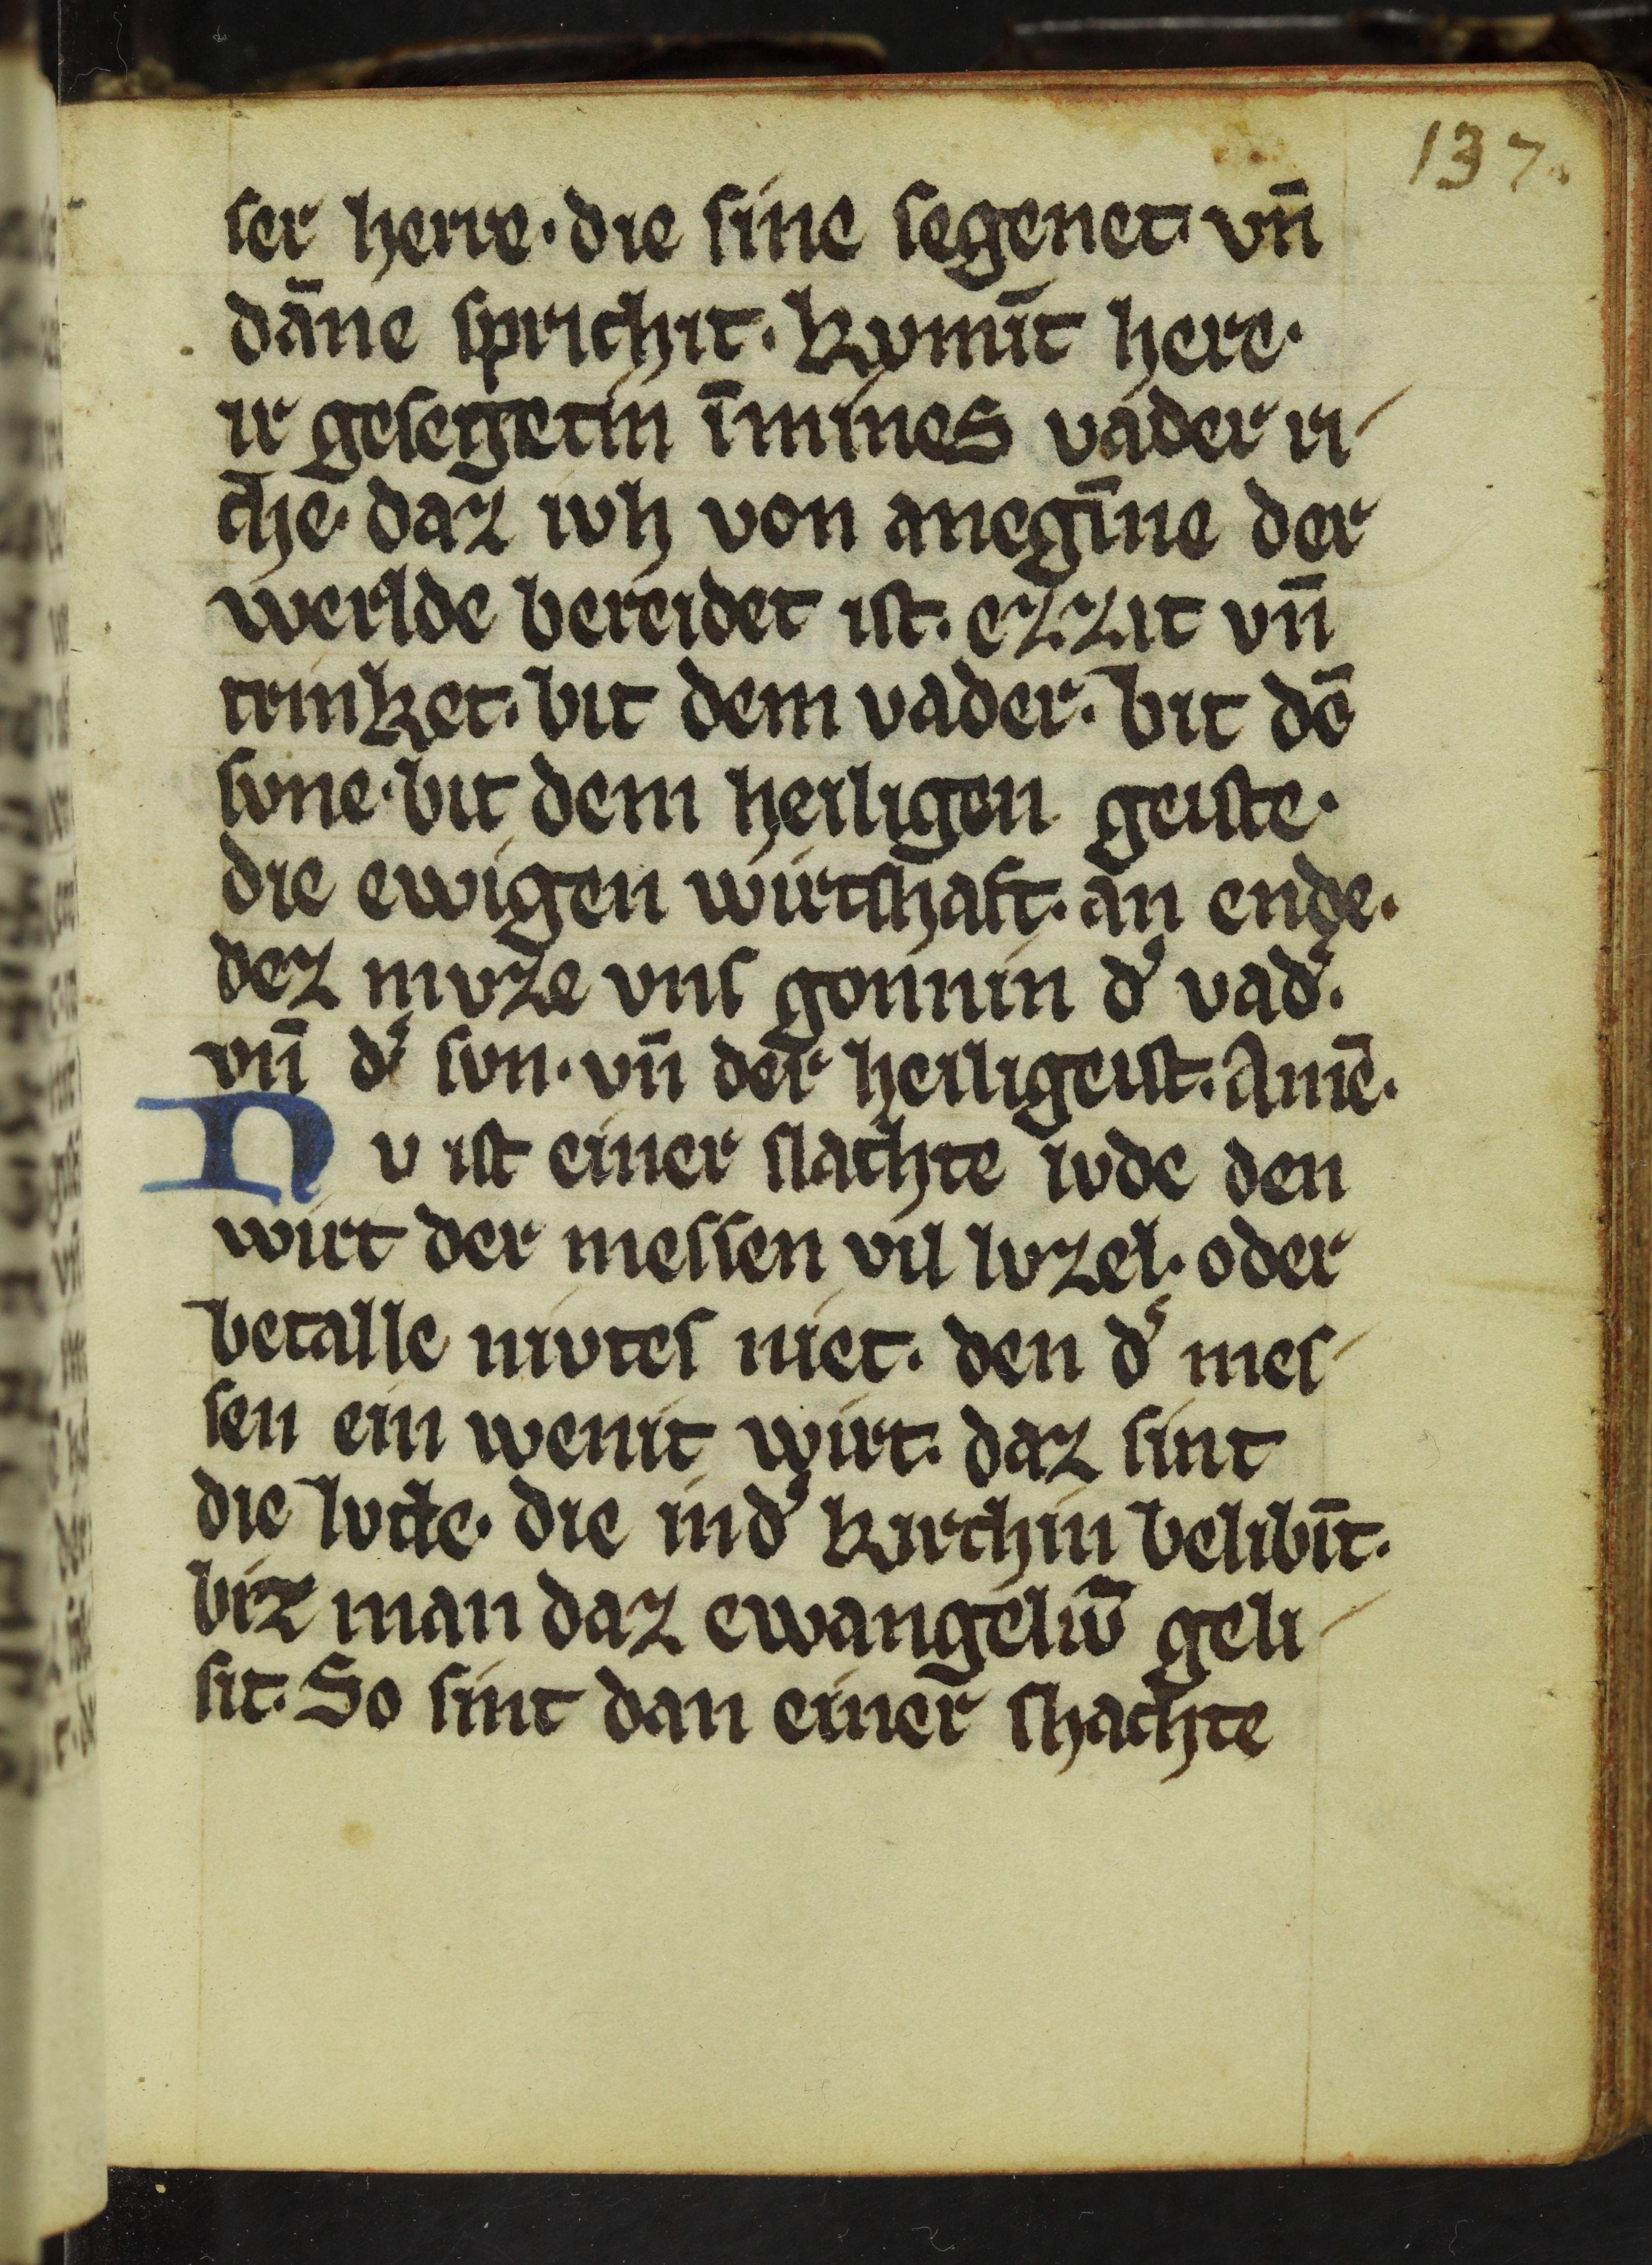 137.
ser herre · die sine segenet · vn̄
dāne sprichit · kvmīt here ·
ir gesegetin īmines vader ri-
che · daz ivh von anegīne der
werlde bereidet ist · ezzit vn̄
trinket · bit dem vader · bit dē
svne · bit dem heiligen geiste ·
die ewigen wirtshaft · an ende ·
dez mvze vns gonnin d̓ vad̓ ·
vn̄ d̓ svn · vn̄ der heiligeist · Amē ·
Nv ist einer slachte lvde den
wirt der messen vil lvzel · oder
betalle nivtes niet · den d̓ mes-
sen ein wenit wirt · daz sint
die lvde · die ind̓ kirchin belibīt ·
biz man daz ewangeliv̄ geli-
sit · So sint dan einer shachte